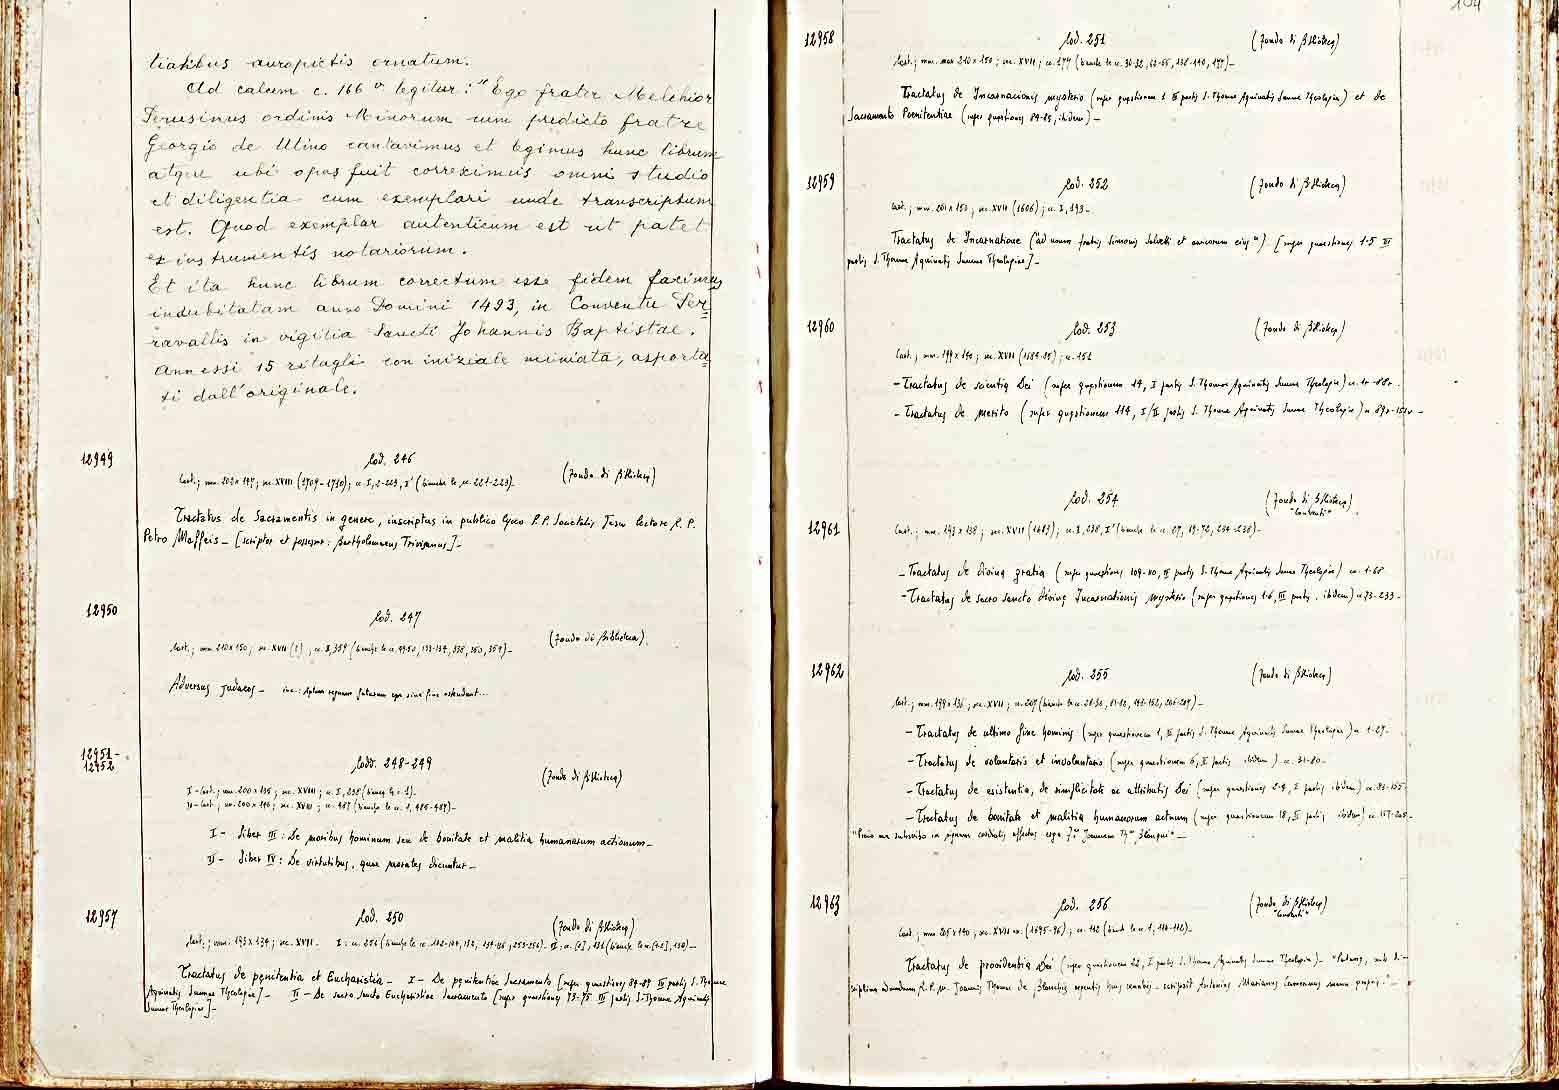 tialibus auropictis ornatum.
Ad calcem c. 166 v legitur: "Ego frater Melchior
Perusinus ordinis Minorum cum predicto fratre
Georgio de Utino cantavimus et legimus hunc librum
atque ubi opus fuit correximus omni studio
et diligentia cum exemplari unde transcriptum
est. Quod exemplar autenticum est ut patet
ex instrumentis notariorum.
Et ita hunc librum correctum esse fidem facimus
indubitatam anno Domini 1493, in Conventu Ser=
ravallis in vigilia Sancti Johannis Baptistae.
Annessi 15 ritagli con iniziale miniata, asporta=
ti dall'originale.
12949
Cod. 246
(Fondo di Biblioteca)
Cart.; mm. 202x147; sec. XVIII (1709-1710); cc. I, 2-223, I' (bianche le cc. 221-223)-
Tractatus de Sacramentis in genere, inscriptus in publico lyceo P.P. Societatis Jesu lectore R. P.
Petro Maffeis - [scriptor et possessor: Bartholomaeus Trivisanus]-
12950
Cod. 247
(Fondo di Biblioteca)
Cart.; mm. 210x150; sec. XVII (?); cc. I, 359
Adversus Judaeos - inc.:
12951-
12952
Codd. 248-249
(Fondo di Biblioteca)
I - Cart.; mm. 200x135; sec. XVIII; cc. I, 238 (bianca la c. 1).
II - Cart.; mm. 200x146; sec. XVIII; cc. 487 (bianche le cc. 1, 485-487)-
I - Liber III: De moribus hominum seu de bonitate et malitia humanarum actionum-
II - Liber IV: De virtutibus, quae morales dicuntur-
12957
Cod. 250
(Fondo di Biblioteca)
Cart.; mm. 193x134; sec. XVII. I: cc. 256
Tractatus de penitentia et Eucharistia - I - De penitentiae Sacramento [super questiones 84-89 III partis S. Thomae
Aquinatis Summae Theologiae]- II - De sacro sancto Eucharistiae Sacramento [super questiones 73-75 III partis S. Thomae Aquinatis
Summae Theologiae]-
104
12958
Cod. 251
(Fondo di Biblioteca)
Cart.; mm. 210x150; sec. XVII; cc. 177
Tractatus de Incarnacionis mysterio (super questionem 1 III partis S. Thomae Aquinatis Summae Theologiae) et de
Sacramento Poenitentiae (super questiones 84-85, ibidem)-
12959
Cod. 252
(Fondo di Biblioteca)
Cart.; mm. 201x153; sec. XVII (1606); cc. I, 193-
Tractatus de Incarnatione ("ad usum fratris Simonis Salvetti et amicorum eius") [super questiones 1-5 III
partis S. Thomae Aquinatis Summae Theologiae]-
12960
Cod. 253
(Fondo di Biblioteca)
Cart.; mm. 199x140; sec. XVII; cc. 151
- Tractatus de scientia Dei (super questionem 14, I partis S. Thomae Aquinatis Summae Theologiae) cc. 1r-88r.
- Tractatus de merito (super questionem 114, I/II partis S. Thomae Aquinatis Summae Theologiae) cc. 89r-151v-
12961
Cod. 254
(Fondo di Biblioteca)
"Conventi"
Cart.; mm. 193x138; sec. XVII; cc. I, 238, I'
- Tractatus de divina gratia (super questiones 109-110, II partis S. Thomae Aquinatis Summae Theologiae) cc. 1-68
- Tractatus de sacro sancto divinae Incarnationis mysterio (super questiones 1-6, III partis, ibidem) cc. 73-233-
12962
Cod. 255
(Fondo di Biblioteca)
Cart.; mm. 199x136; sec. XVII; cc. 207
- Tractatus de ultimo fine hominis (super questionem 1, II partis S. Thomae Aquinatis Summae Theologiae) cc. 1-27-
- Tractatus de voluntario et involuntario (super questionem 6, II partis ibidem) cc. 31-80-
- Tractatus de existentia, de simplicitate ac attributis Dei (super questiones 2-9, I partis ibidem) cc. 83-155-
- Tractatus de bonitate et malitia humanorum actuum (super questionem 18, II partis ibidem) cc. 157-205-
12963
Cod. 256
(Fondo di Biblioteca)
"Conventi"
Cart.; mm 205x140; sec. XVII ex. (1695-96); cc. 112
Tractatus de providentia Dei (super questionem 22, I partis S. Thomae Aquinatis Summae Theologiae)-
R. P. m. Joannis Thomae de Blanchis regentis huius cenobii - scripsit Antonius Marianus Camerinus manu propria"-